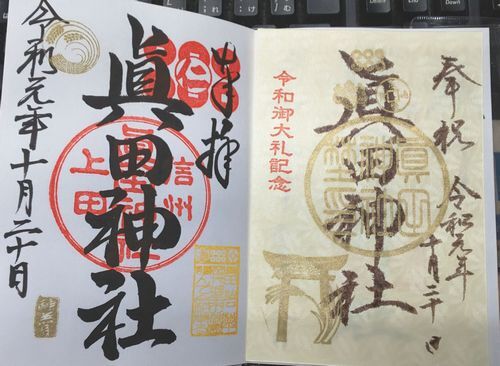 奉拝
眞田神社
信州
上田
令和元年十月二十日
奉祝
令和元年
十月二十日
眞田神社
令和御大礼記念